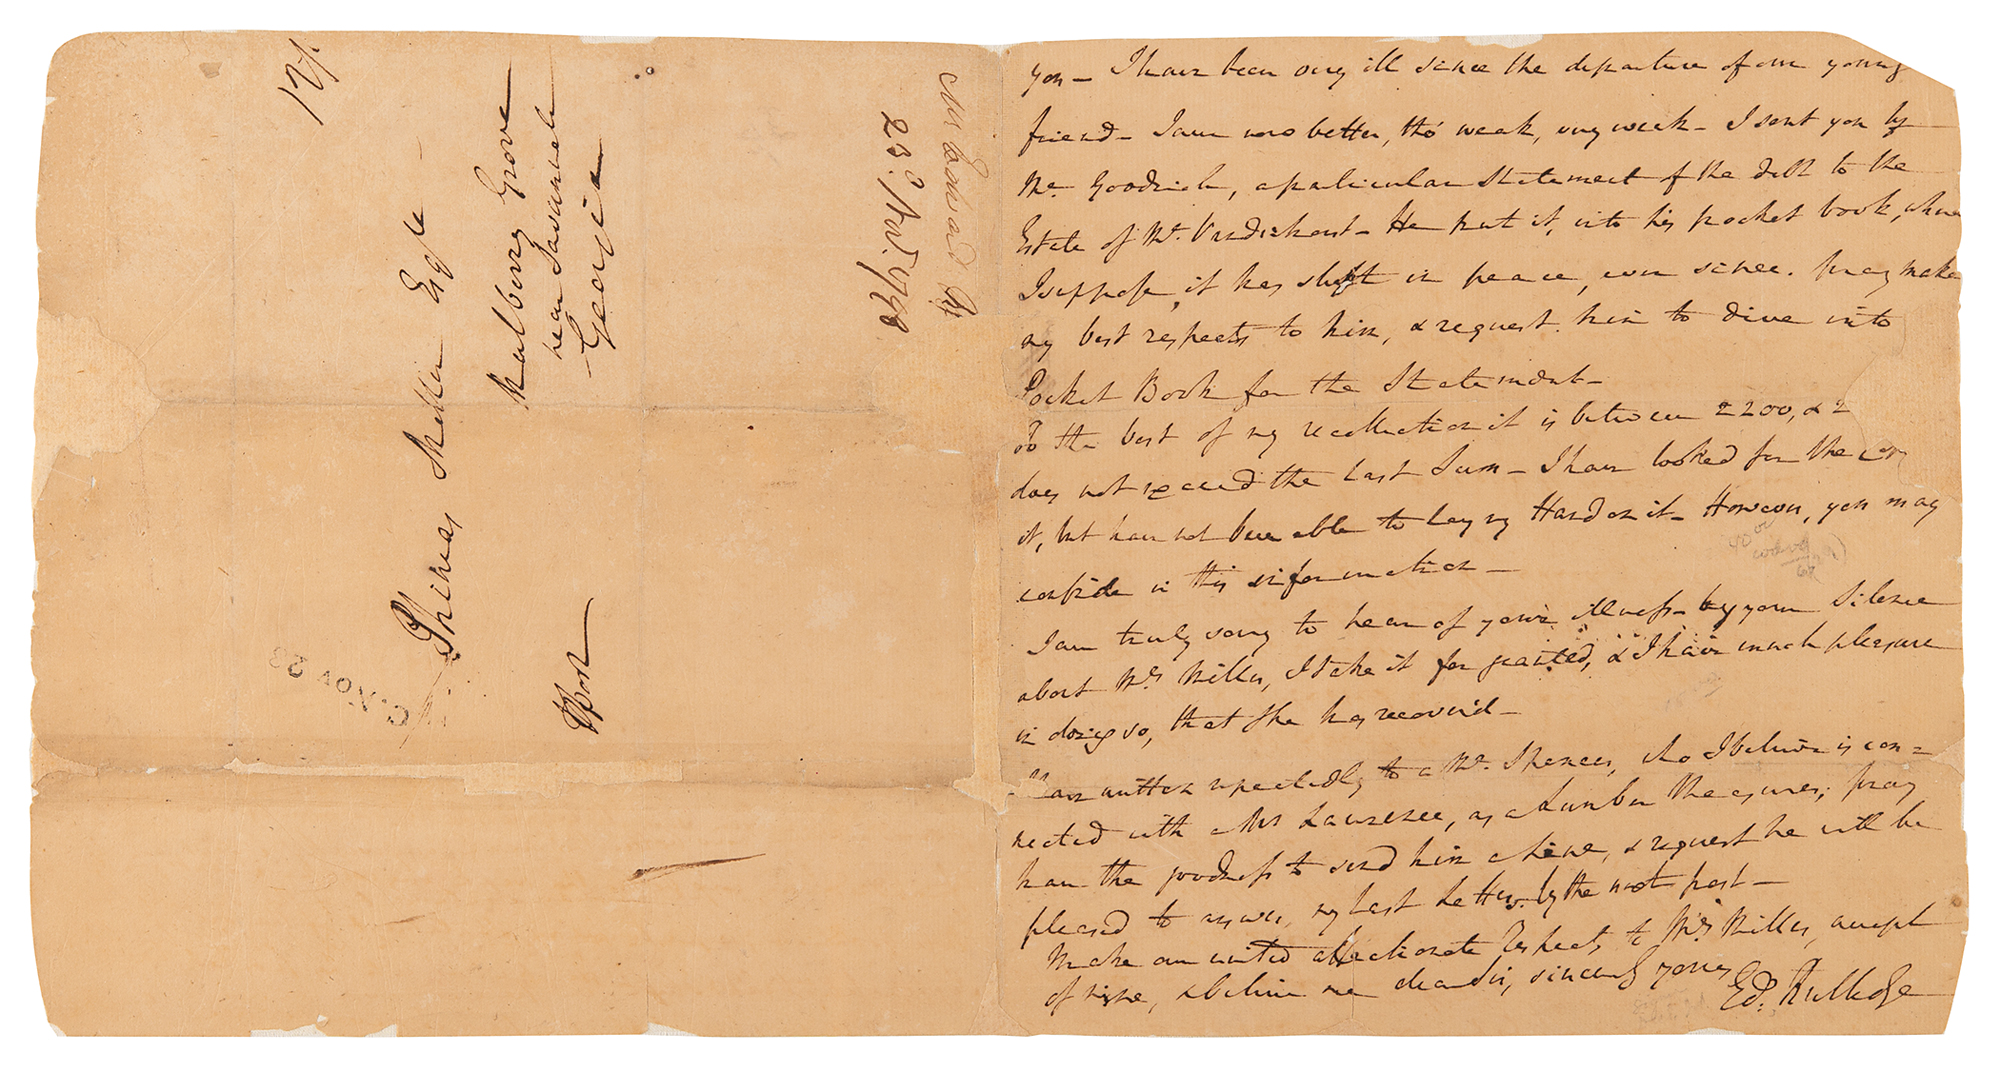 12/.
Phineas Miller Esqr
Mulberry Grove
near Savannah
Georgia
Post
C. Nov 23
Mr Edward
23d. Nov. 1798
you – I have been very ill since the departure of our young
friend – I am now better, tho' weak, very weak – I sent you by
Mr Goodrich, a particular Statement of the debt to the
Estate of Mr. Vanderhorst – He put it, into his pocket book, where
I suppose, it has slept in peace, ever since. pray make
my best respects to him, & request him to dive into
Pocket Book for the Statement –
To the best of my recollection it is between 2200, & 2
does not exceed the last Sum – I have looked for the
it, but have not been able to lay my Hand on it – However, you may
confide in this information –
I am truly sorry to hear of your illness – by your Silence
about Mrs Miller, I take it for granted, & I have much pleasure
in doing so, that she has recovered –
Have written repeatedly to a Mr. Spencer, who I believe is con=
nected with a Mr Lawrence, as a Lumber Measurer; pray
have the goodness to send him a line, & request he will be
pleased to answer, my last Letter. by the next post –
Make our united affectionate Respects to Mrs Miller, accept
of mine, & believe me dear Sir, sincerely yours
Ed: Rutledge